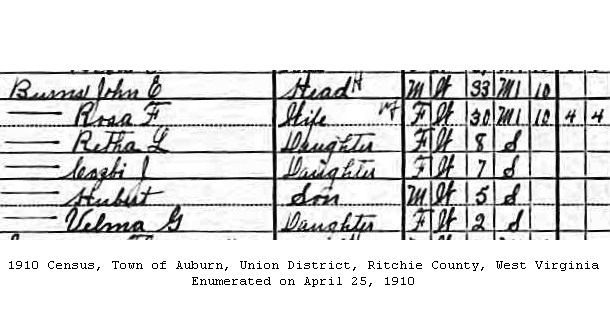 Burns John E Head M W 33 M1 10
Rosa F Wife F W 30 M1 10 4 4
Retha L Daughter F W 8 S
J Daughter F W 7 S
Hubert Son M W 5 S
Velma G Daughter F W 2 S
1910 Census, Town of Auburn, Union District, Ritchie County, West Virginia
Enumerated on April 25, 1910